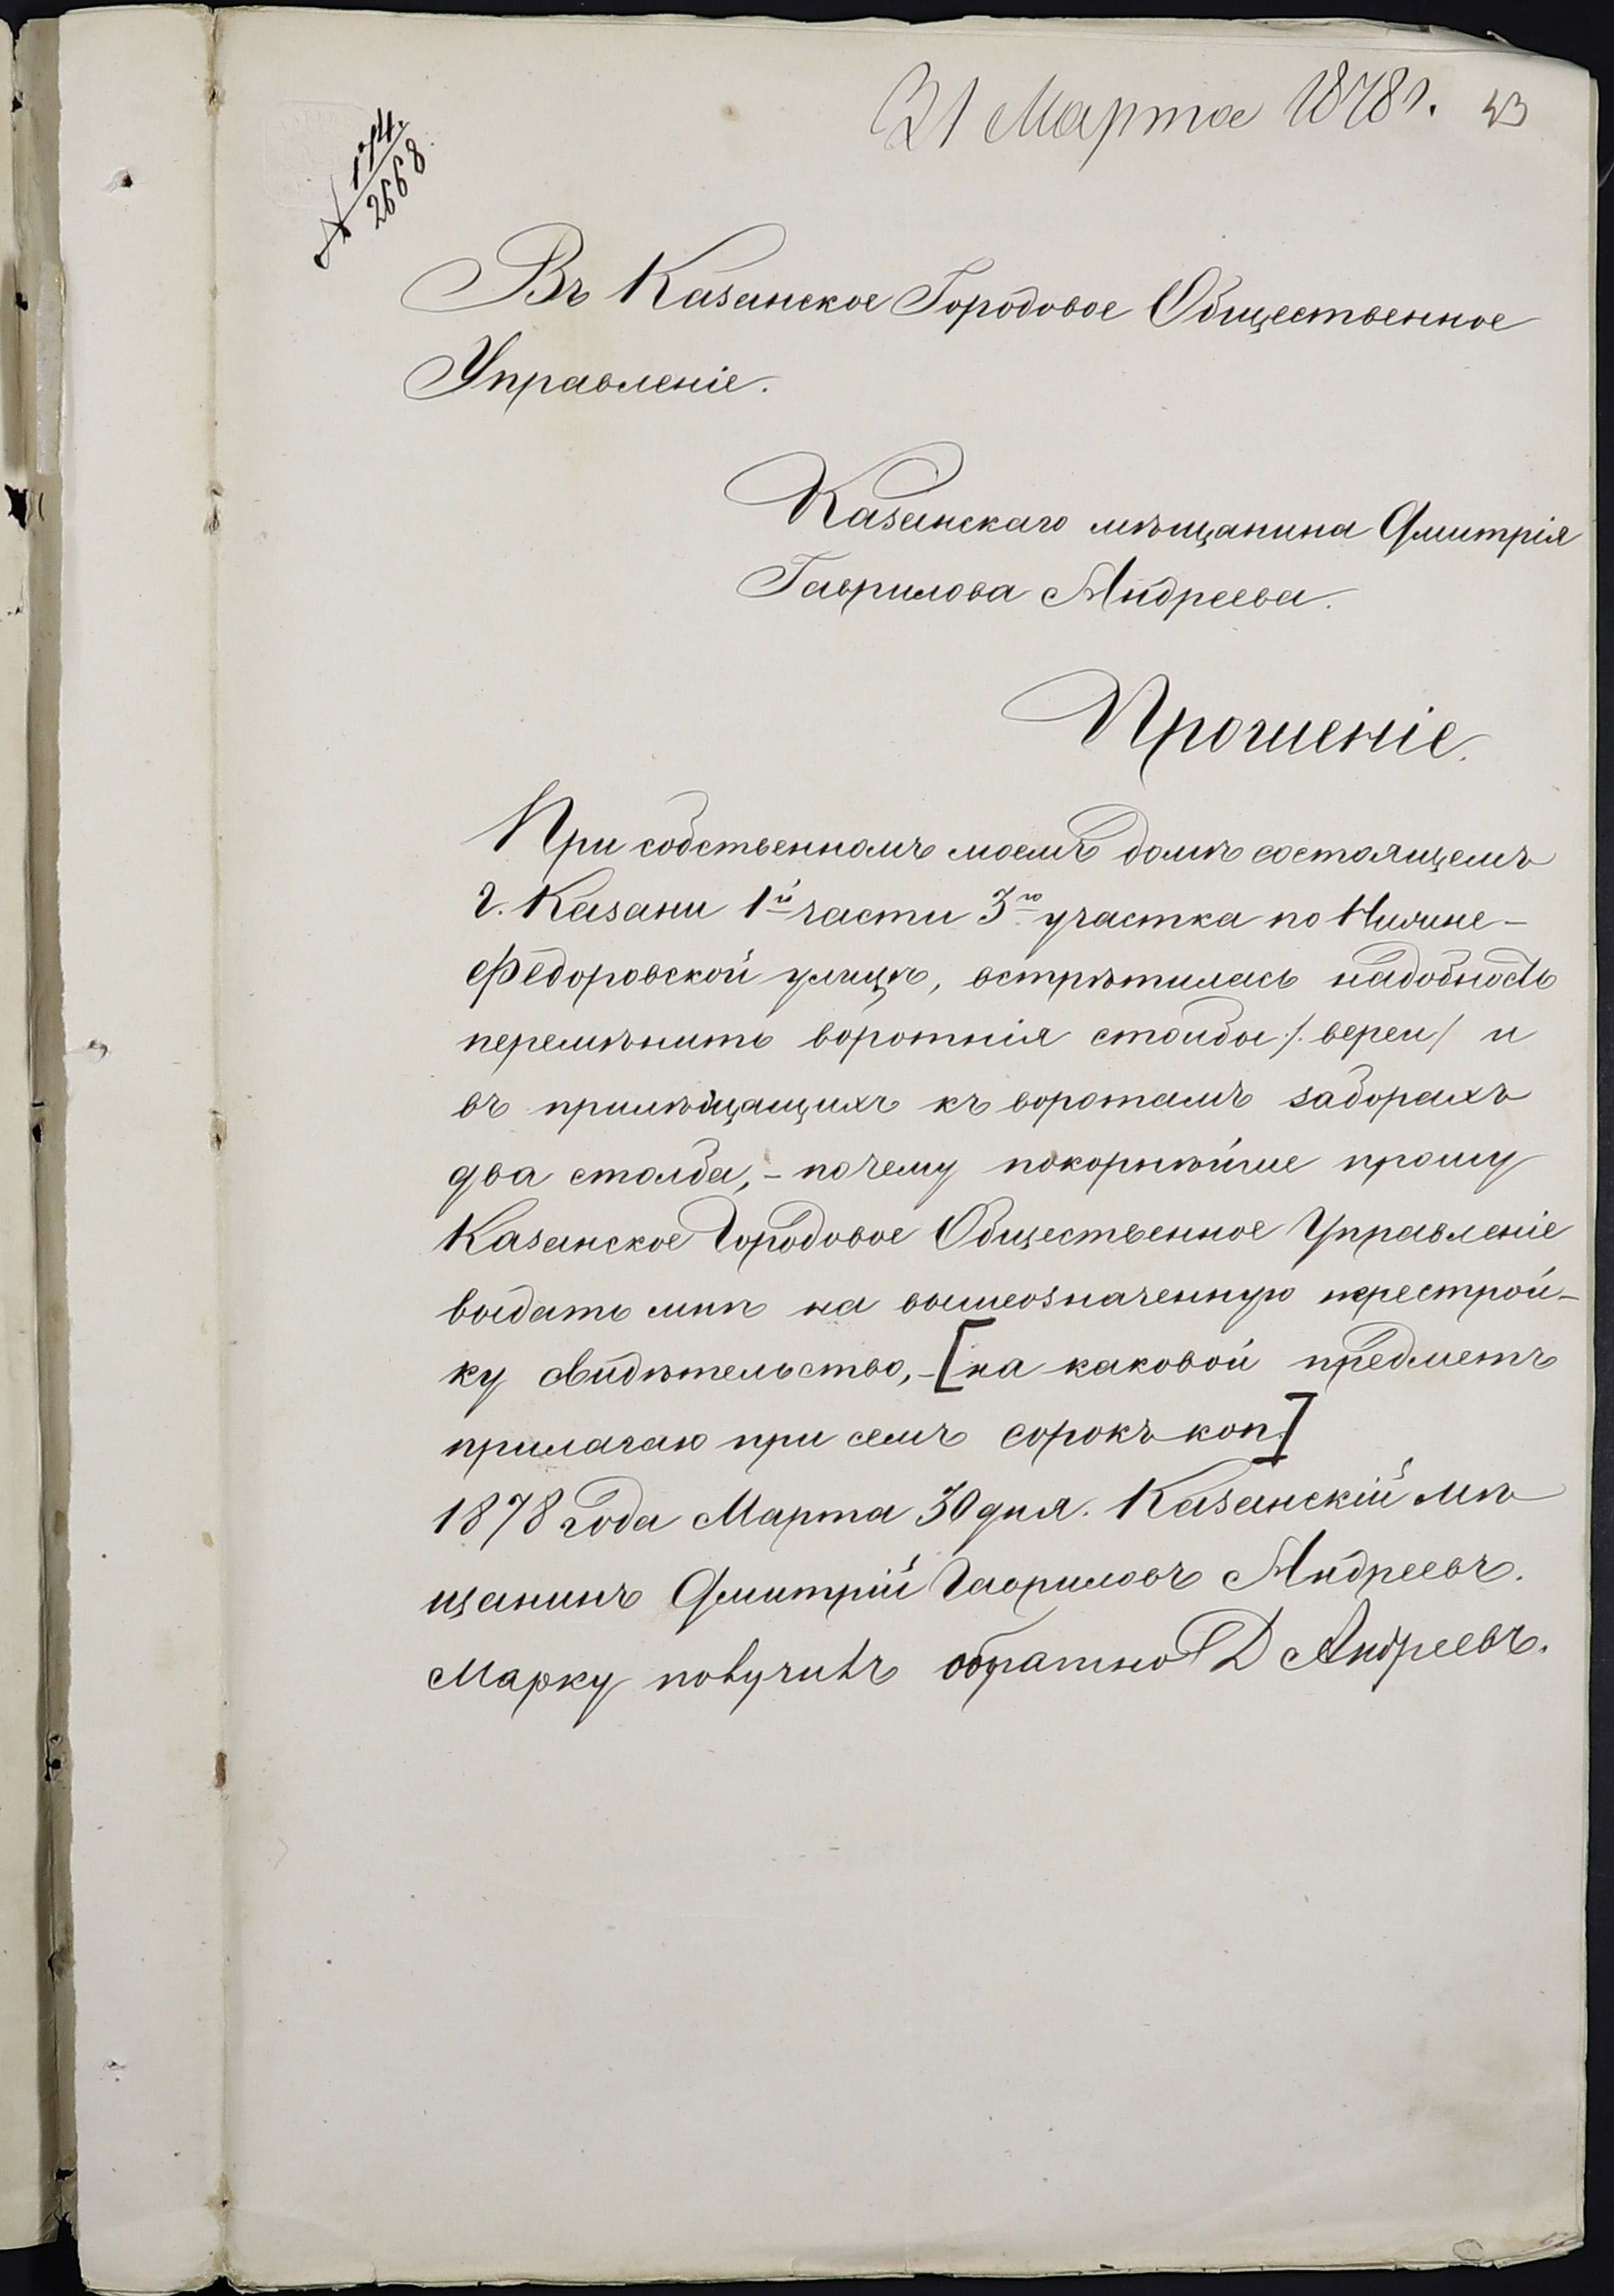 31 Марта 1878 г. 43
№ 174.
2668.
Въ Казанское Городовое Общественное
Управленіе.
Казанскаго мѣщанина Дмитрія
Гаврилова Андреева.
Прошеніе.
При собственномъ моемъ домѣ состоящемъ
г. Казани 1й части 3го участка по Нижне-
Федоровской улицѣ, встрѣтилась надобность
перемѣнить воротнія столбы /. вереи / и
въ примѣщащихъ къ воротамъ заборахъ
два столба, - почему покорнѣйше прошу
Казанское Городовое Общественное Управленіе
выдать мнѣ на вышеозначенную перестрой-
ку свидѣтельство, - [на каковой предметъ
прилагаю при семъ сорокъ коп.]
1878 года Марта 30 дня. Казанскій мѣ
щанинъ Дмитрій Гавриловъ Андреевъ.
Марку получилъ обратно Д Андреевъ.